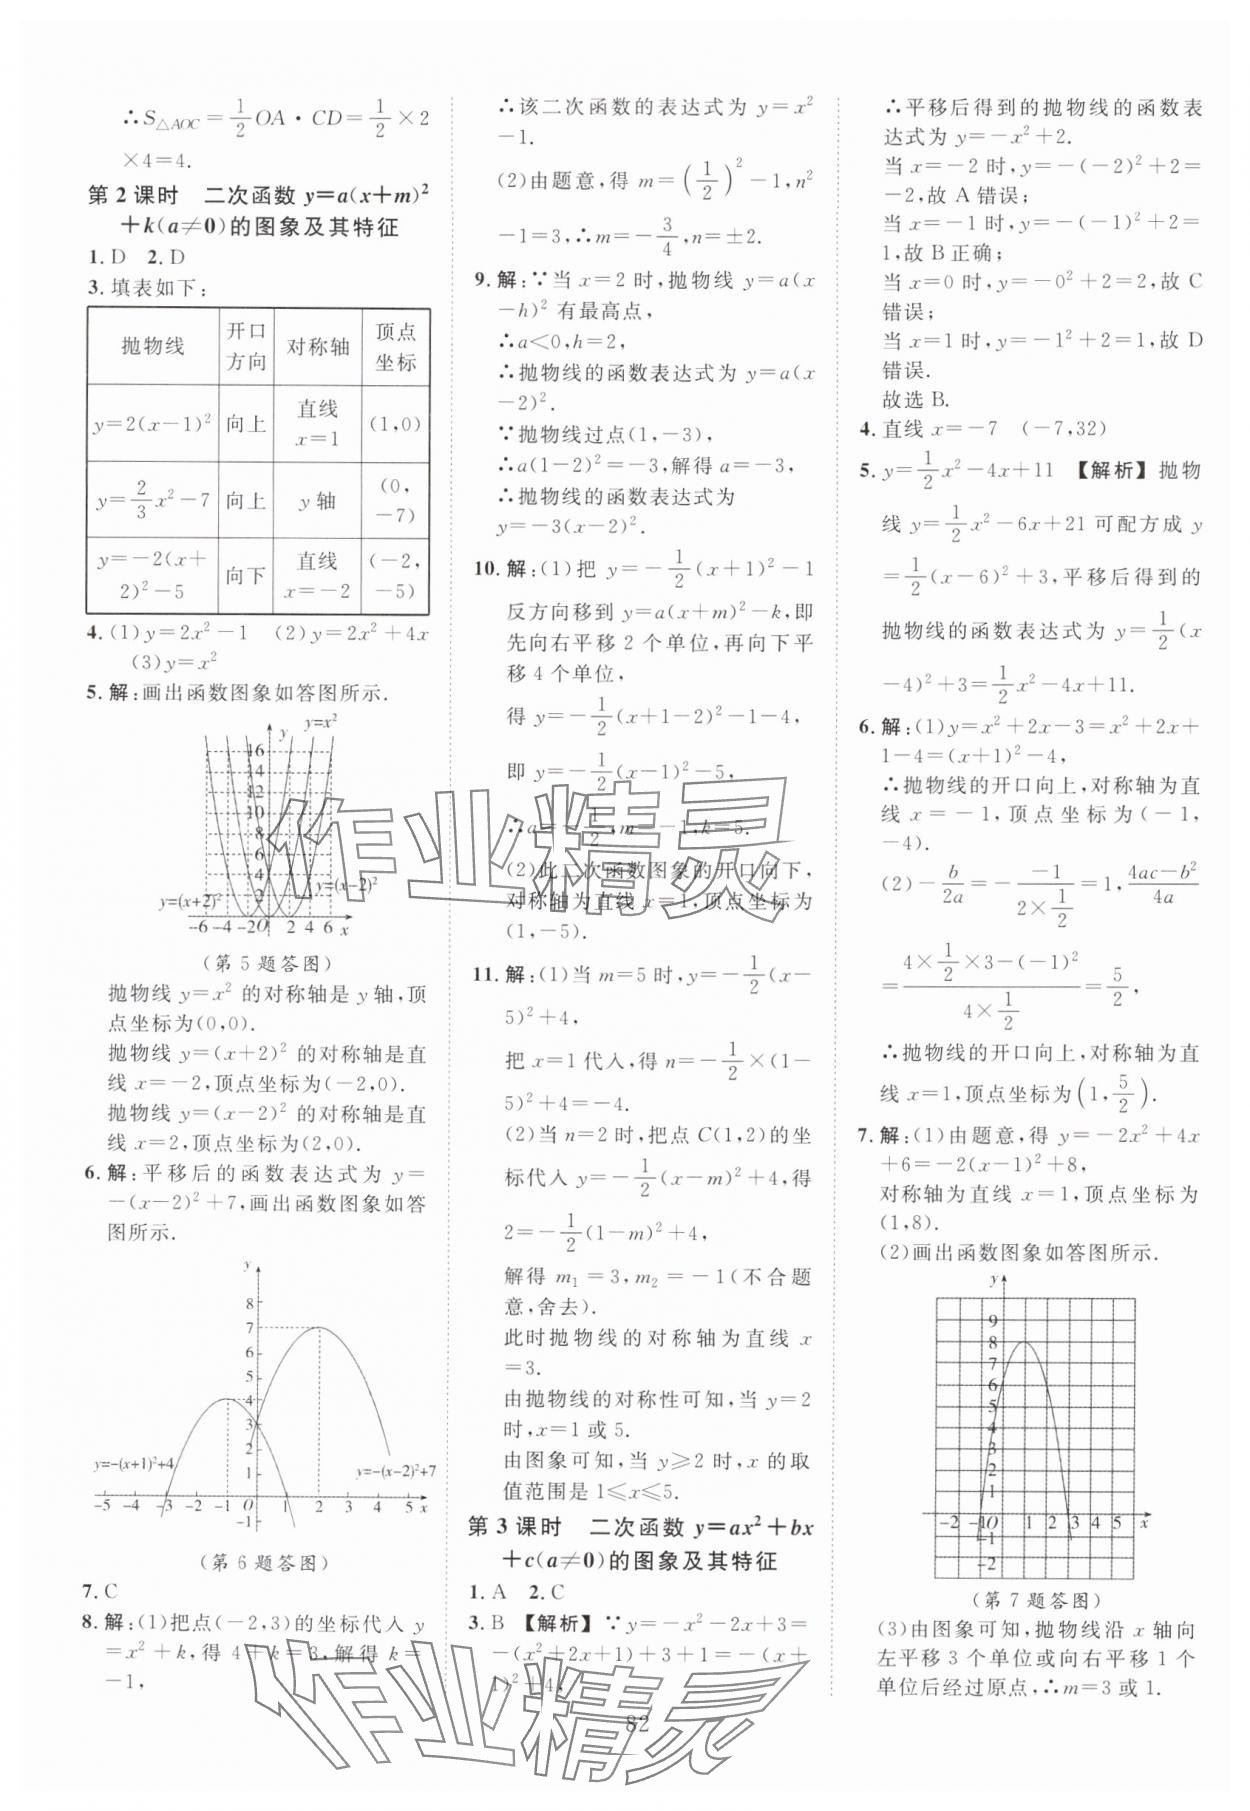 ∴S△AOC=1/2 OA·CD=1/2×2
×4=4.
第2课时　二次函数 y=a(x+m)²
+k(a≠0)的图象及其特征
1. D　2. D
3. 填表如下:
抛物线　开口方向　对称轴　顶点坐标
y=2(x-1)²　向上　直线 x=1　(1,0)
y=2/3 x²-7　向上　y 轴　(0,-7)
y=-2(x+2)²-5　向下　直线 x=-2　(-2,-5)
4. (1)y=2x²-1　(2)y=2x²+4x
(3)y=x²
5. 解:画出函数图象如答图所示.
y=x²
y
16
14
12
10
8
6
4
2
y=(x+2)²
y=(x-2)²
-6 -4 -2 O 2 4 6 x
(第5题答图)
抛物线 y=x² 的对称轴是 y 轴,顶
点坐标为(0,0).
抛物线 y=(x+2)² 的对称轴是直
线 x=-2,顶点坐标为(-2,0).
抛物线 y=(x-2)² 的对称轴是直
线 x=2,顶点坐标为(2,0).
6. 解:平移后的函数表达式为 y=
-(x-2)²+7,画出函数图象如答
图所示.
y
8
7
6
5
4
3
2
1
y=-(x+1)²+4
y=-(x-2)²+7
-5 -4 -3 -2 -1 O 1 2 3 4 5 x
-1
(第6题答图)
7. C
8. 解:(1)把点(-2,3)的坐标代入 y
=x²+k,得 4+k=3,解得 k=
-1,
∴该二次函数的表达式为 y=x²
-1.
(2)由题意,得 m=(1/2)²-1,n²
-1=3,∴m=-3/4,n=±2.
9. 解:∵当 x=2 时,抛物线 y=a(x
-h)² 有最高点,
∴a<0,h=2,
∴抛物线的函数表达式为 y=a(x
-2)².
∵抛物线过点(1,-3),
∴a(1-2)²=-3,解得 a=-3,
∴抛物线的函数表达式为
y=-3(x-2)².
10. 解:(1)把 y=-1/2(x+1)²-1
反方向移到 y=a(x+m)²-k,即
先向右平移 2 个单位,再向下平
移 4 个单位,
得 y=-1/2(x+1-2)²-1-4,
即 y=-1/2(x-1)²-5,
∴a=-1/2,m=-1,k=5.
(2)此二次函数图象的开口向下,
对称轴为直线 x=1,顶点坐标为
(1,-5).
11. 解:(1)当 m=5 时,y=-1/2(x-
5)²+4,
把 x=1 代入,得 n=-1/2×(1-
5)²+4=-4.
(2)当 n=2 时,把点 C(1,2)的坐
标代入 y=-1/2(x-m)²+4,得
2=-1/2(1-m)²+4,
解得 m₁=3,m₂=-1(不合题
意,舍去).
此时抛物线的对称轴为直线 x
=3.
由抛物线的对称性可知,当 y=2
时,x=1 或 5.
由图象可知,当 y≥2 时,x 的取
值范围是 1≤x≤5.
第3课时　二次函数 y=ax²+bx
+c(a≠0)的图象及其特征
1. A　2. C
3. B　【解析】∵y=-x²-2x+3=
-(x²+2x+1)+3+1=-(x+
1)²+4,
∴平移后得到的抛物线的函数表
达式为 y=-x²+2.
当 x=-2 时,y=-(-2)²+2=
-2,故 A 错误;
当 x=-1 时,y=-(-1)²+2=
1,故 B 正确;
当 x=0 时,y=-0²+2=2,故 C
错误;
当 x=1 时,y=-1²+2=1,故 D
错误.
故选 B.
4. 直线 x=-7　(-7,32)
5. y=1/2 x²-4x+11　【解析】抛物
线 y=1/2 x²-6x+21 可配方成 y
=1/2(x-6)²+3,平移后得到的
抛物线的函数表达式为 y=1/2(x
-4)²+3=1/2 x²-4x+11.
6. 解:(1)y=x²+2x-3=x²+2x+
1-4=(x+1)²-4,
∴抛物线的开口向上,对称轴为直
线 x=-1,顶点坐标为(-1,
-4).
(2)-b/2a=-(-1)/(2×1/2)=1,(4ac-b²)/4a
=(4×1/2×3-(-1)²)/(4×1/2)=5/2,
∴抛物线的开口向上,对称轴为直
线 x=1,顶点坐标为(1,5/2).
7. 解:(1)由题意,得 y=-2x²+4x
+6=-2(x-1)²+8,
对称轴为直线 x=1,顶点坐标为
(1,8).
(2)画出函数图象如答图所示.
y
9
8
7
6
5
4
3
2
1
-2 -1 O 1 2 3 4 5 x
-1
-2
(第7题答图)
(3)由图象可知,抛物线沿 x 轴向
左平移 3 个单位或向右平移 1 个
单位后经过原点,∴m=3 或 1.
82
作业精灵
作业精灵